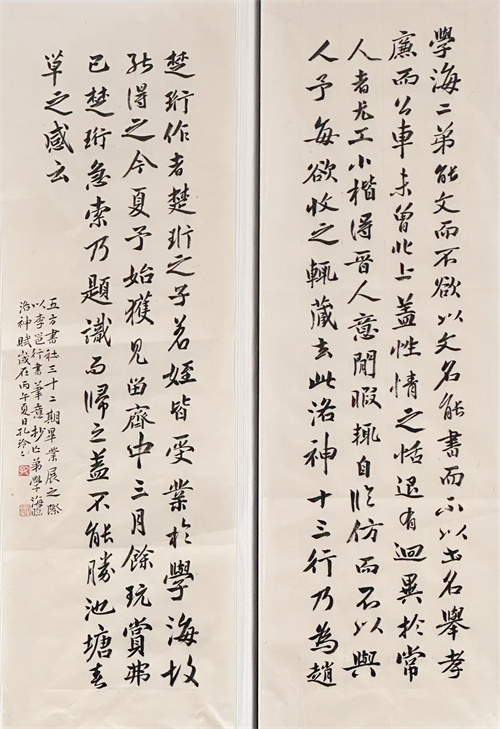 學海二弟能文而不欲以文名能書而不以書名舉孝
廉而公車未曾北上蓋性情之恬退有迥異於常
人者尤工小楷得晉人意閒暇輒自臨仿而不以與
人予每欲收之輒藏去此洛神十三行乃為趙
楚珩作者楚珩之子若姪皆受業於學海故
能得之今夏予始獲見留齊中三月餘玩賞弗
已楚珩急索乃題識而歸之蓋不能勝池塘春
草之感云
五方書社三十二期畢業展之際
以李邕行書筆意抄亡弟學海臨
洛神賦歲在丙午夏日孔玲